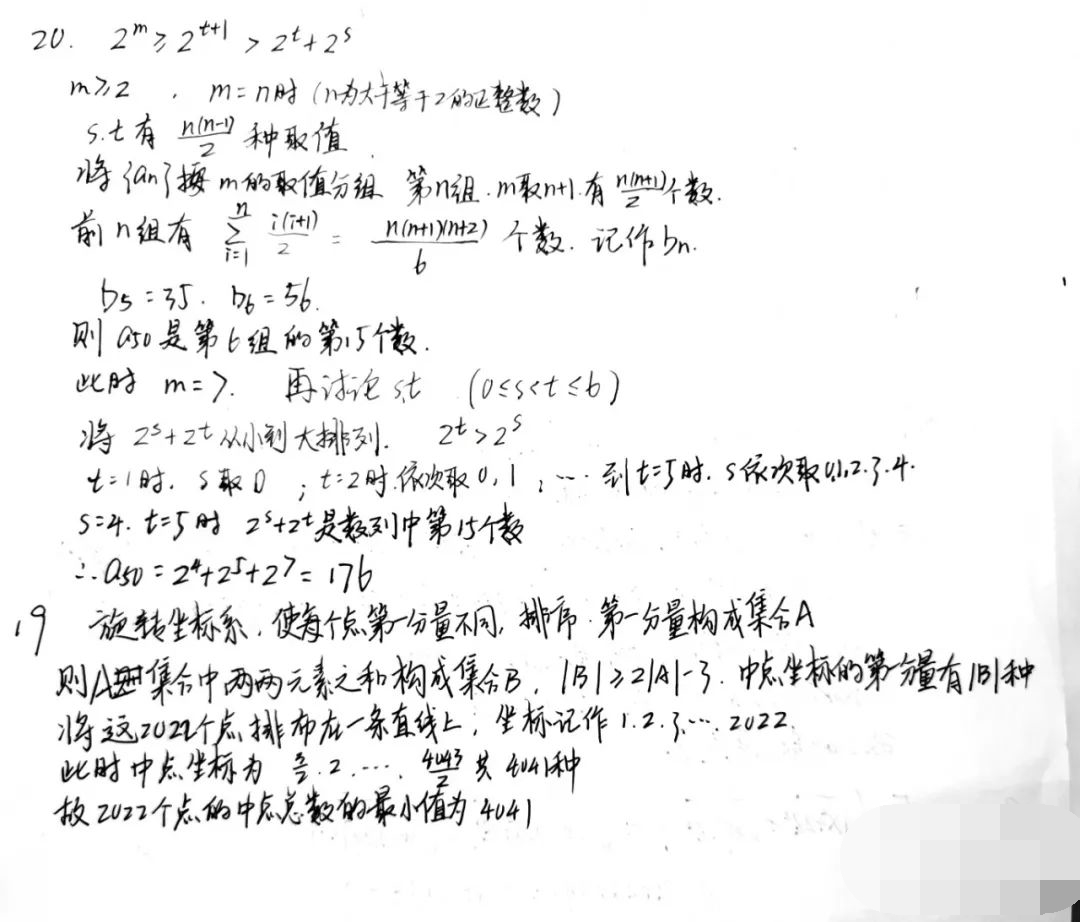 20. 2^m ≥ 2^{t+1} > 2^t + 2^s
m≥2 , m=n时 (n为大于等于2的正整数)
s.t有 n(n-1)/2 种取值
将{an}按m的取值分组 第n组.m取n+1.有 n(n+1)/2 个数.
前n组有 \sum_{i=1}^{n} i(i+1)/2 = n(n+1)(n+2)/6 个数. 记作bn.
b5=35. b6=56.
则a50是第6组的第15个数.
此时 m=7. 再讨论s,t (0≤s<t≤6)
将 2^s+2^t从小到大排列. 2^t>2^s
t=1时. s取0 ; t=2时.依次取0,1 , … 到t=5时. s依次取0,1,2.3.4.
s=4. t=5时 2^s+2^t是数列中第15个数
∴a50=2^4+2^5+2^7=176
19 旋转坐标系,使每个点第一分量不同,排序.第一分量构成集合A
则A集合中两两元素之和构成集合B, |B|≥2|A|-3. 中点坐标的第一分量有|B|种
将这2022个点排布在一条直线上, 坐标记作1.2.3.… 2022.
此时中点坐标为 3/2 .2.…. 4043/2 共4041种
故2022个点的中点总数的最小值为4041